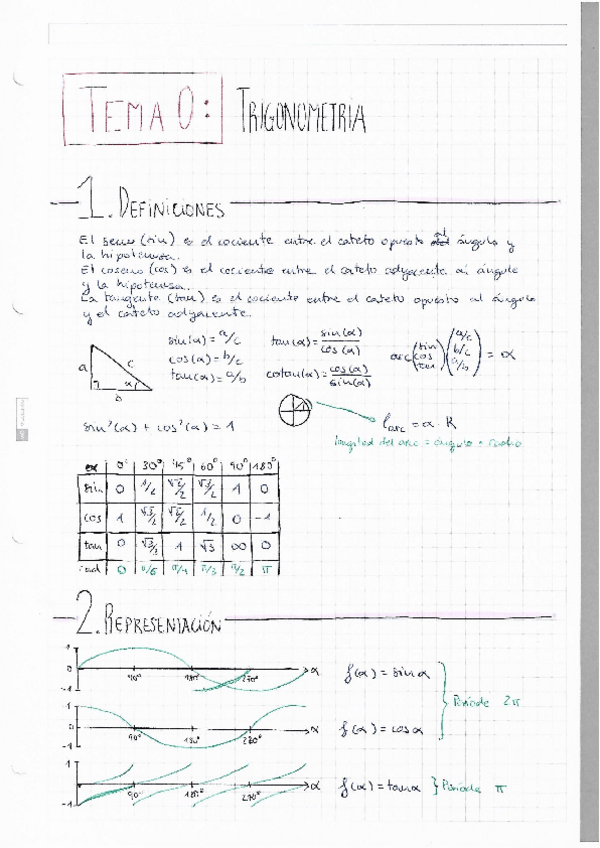 TEMA 0: TRIGONOMETRÍA
1. DEFINICIONES
El seno (sin) es el cociente entre el cateto opuesto al ángulo y
la hipotenusa.
El coseno (cos) es el cociente entre el cateto adyacente al ángulo
y la hipotenusa.
La tangente (tan) es el cociente entre el cateto opuesto al ángulo
y el cateto adyacente.
a c b α
sin(α) = a/c
cos(α) = b/c
tan(α) = a/b
tan(α) = sin(α)/cos(α)
cotan(α) = cos(α)/sin(α)
arc (sin cos tan) (a/c b/c a/b) = α
sin²(α) + cos²(α) = 1
l arc = α · R
longitud del arc = ángulo · radio
α 0° 30° 45° 60° 90° 180°
sin 0 1/2 √2/2 √3/2 1 0
cos 1 √3/2 √2/2 1/2 0 -1
tan 0 √3/3 1 √3 ∞ 0
rad 0 π/6 π/4 π/3 π/2 π
2. REPRESENTACIÓN
1 0 -1 90° 180° 270° α
f(α) = sin α
Periode 2π
1 0 -1 90° 180° 270° α
f(α) = cos α
1 -1 90° 180° 270° α
f(α) = tan α } Periode π